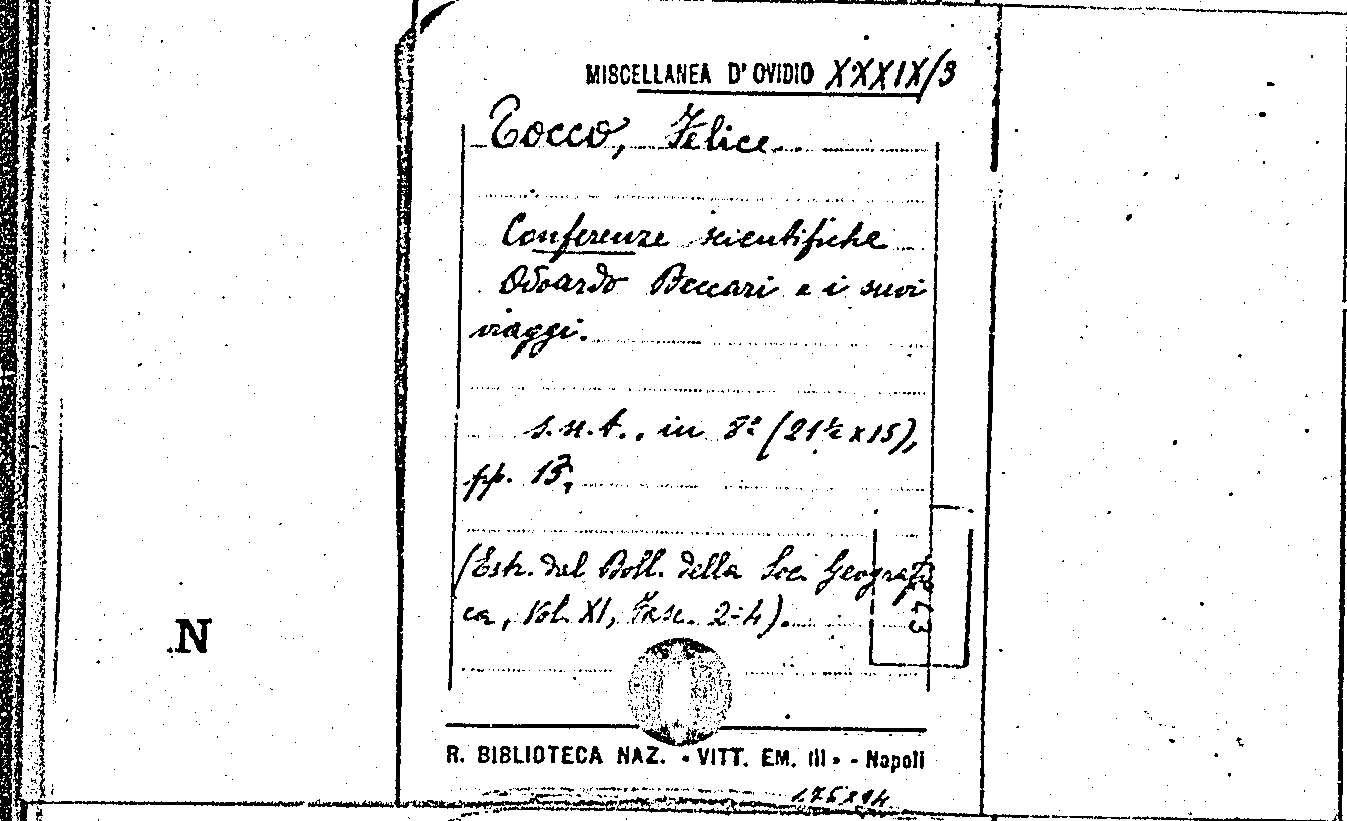 MISCELLANEA D'OVIDIO XXXIX/3
Tocco, Felice.
Conferenze scientifiche
Odoardo Beccari e i suoi
viaggi.
s.n.t., in 8º (21½ x 15),
pp. 13,
(Estr. dal Boll. della Soc. Geografi
ca, Vol. XI, Fasc. 2=4).
N
R. BIBLIOTECA NAZ. • VITT. EM. III • - Napoli